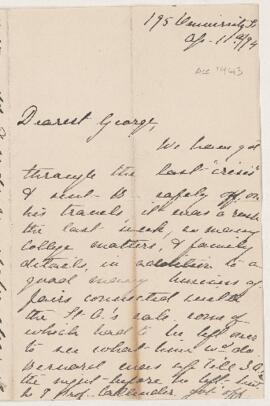 195 University St
Ap. 11th/94
Acc 1443
Dearest George,
We have got
through the last "crisis"
& sent B— safely off on
his travels. It was a rush
the last week, so many
college matters, & family
details, in addition to a
good many business af-
fairs connected with
the St. A.'s sale, some of
which had to be left over
to see what him wd do.
Bernard was up till 3 A
the night before he left, but
he & Prof. Callendar got off